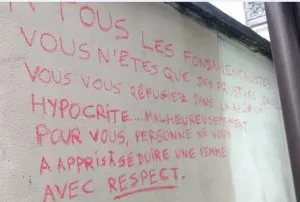 A TOUS LES FONDAMENTALISTES
VOUS N'ÊTES QUE DES FRUSTRÉS
VOUS VOUS RÉFUGIEZ DANS LA RELIGION
HYPOCRITE... MALHEUREUSEMENT
POUR VOUS, PERSONNE NE VOUS
A APPRIS À SÉDUIRE UNE FEMME
AVEC RESPECT.